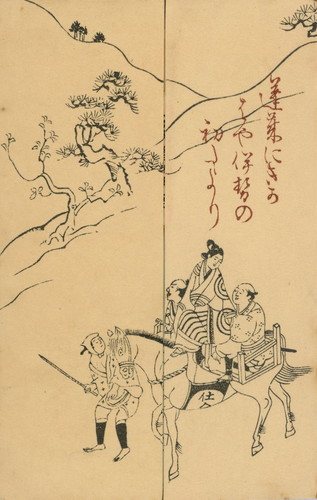 蓬莱にきか
はや伊勢の
初たより
仕